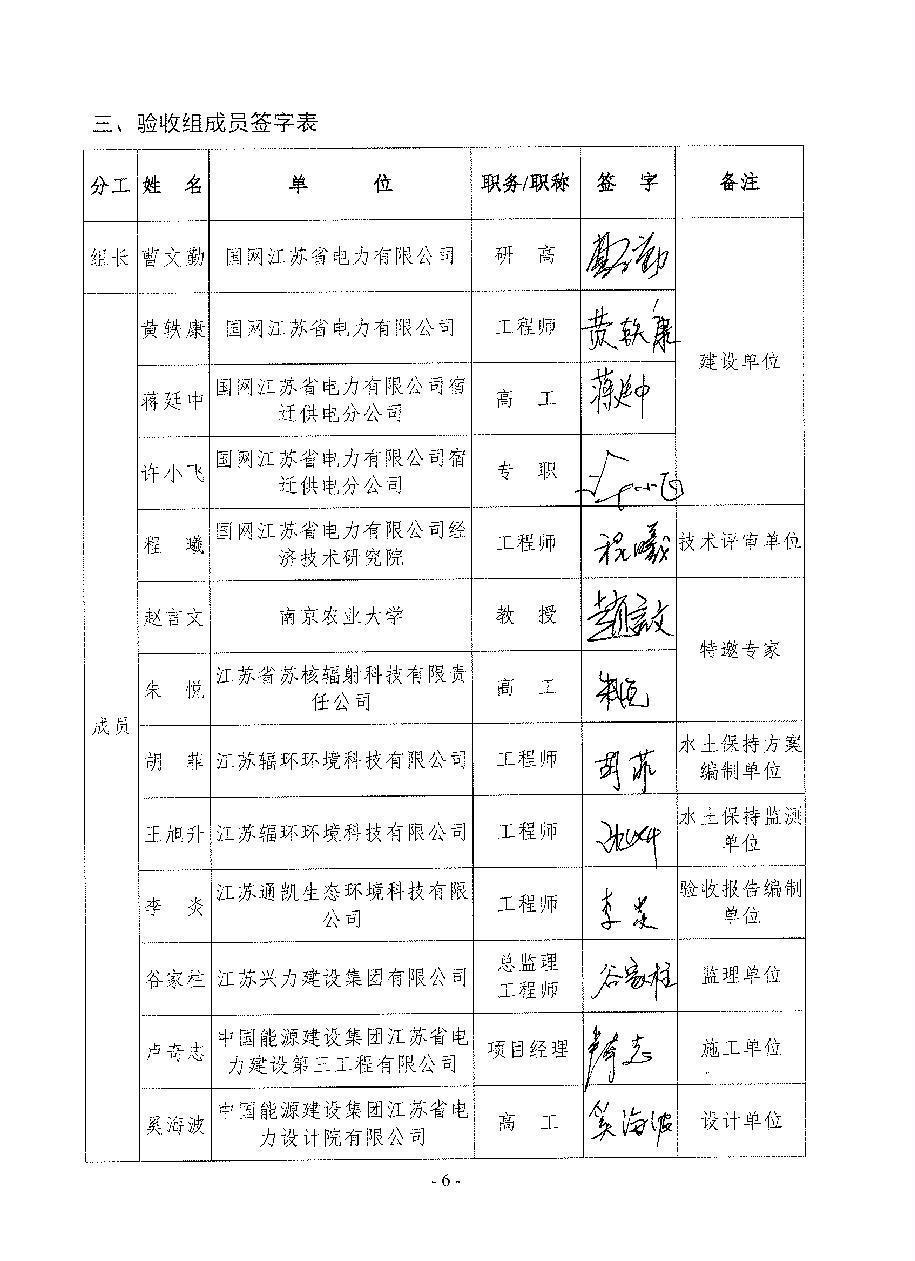 三、验收组成员签字表
分工 姓 名 单 位 职务/职称 签 字 备注
组长 曹文勤 国网江苏省电力有限公司 研 高
黄轶康 国网江苏省电力有限公司 工程师 黄轶康
建设单位
蒋廷中 国网江苏省电力有限公司宿
迁供电分公司 高 工 蒋廷中
许小飞 国网江苏省电力有限公司宿
迁供电分公司 专 职
程 曦 国网江苏省电力有限公司经
济技术研究院 工程师 程曦 技术评审单位
赵言文 南京农业大学 教 授 赵言文
特邀专家
朱 悦 江苏省苏核辐射科技有限责
任公司 高 工
成员
胡 菲 江苏辐环环境科技有限公司 工程师 胡菲 水土保持方案
编制单位
王旭升 江苏辐环环境科技有限公司 工程师 水土保持监测
单位
李 炎 江苏通凯生态环境科技有限
公司 工程师 李炎 验收报告编制
单位
谷家柱 江苏兴力建设集团有限公司 总监理
工程师 谷家柱 监理单位
卢奇志 中国能源建设集团江苏省电
力建设第三工程有限公司 项目经理 卢奇志 施工单位
奚海波 中国能源建设集团江苏省电
力设计院有限公司 高 工 奚海波 设计单位
- 6 -